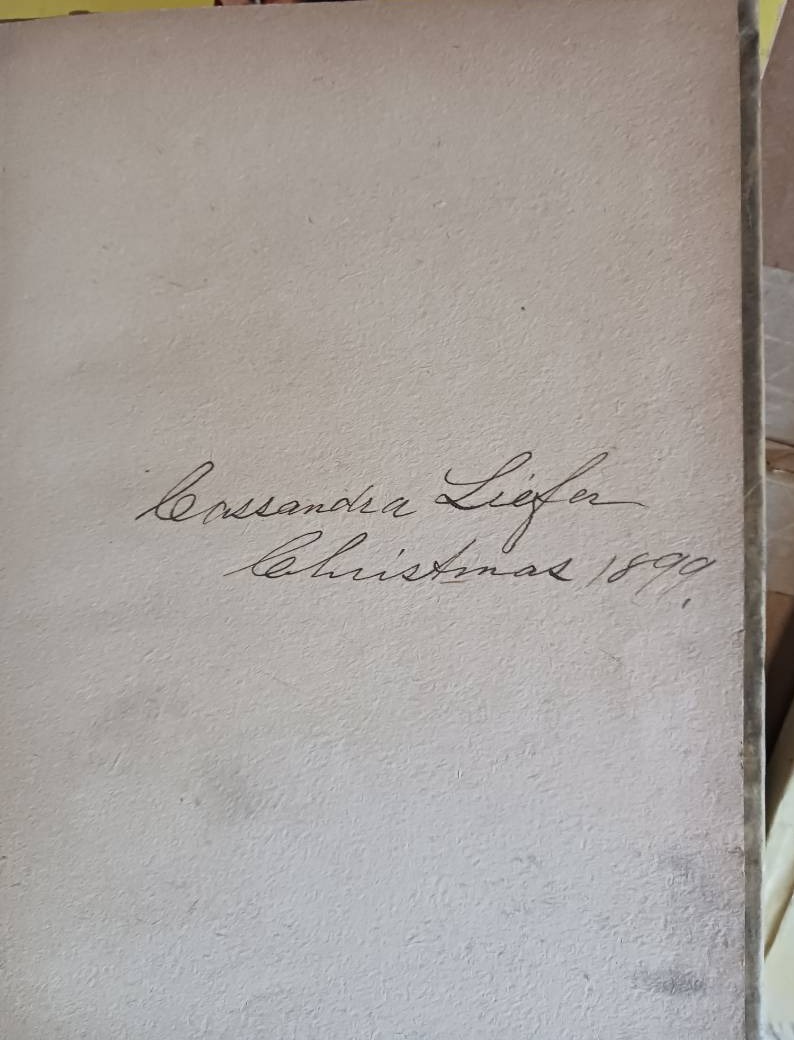 Cassandra Liefer
Christmas 1899.